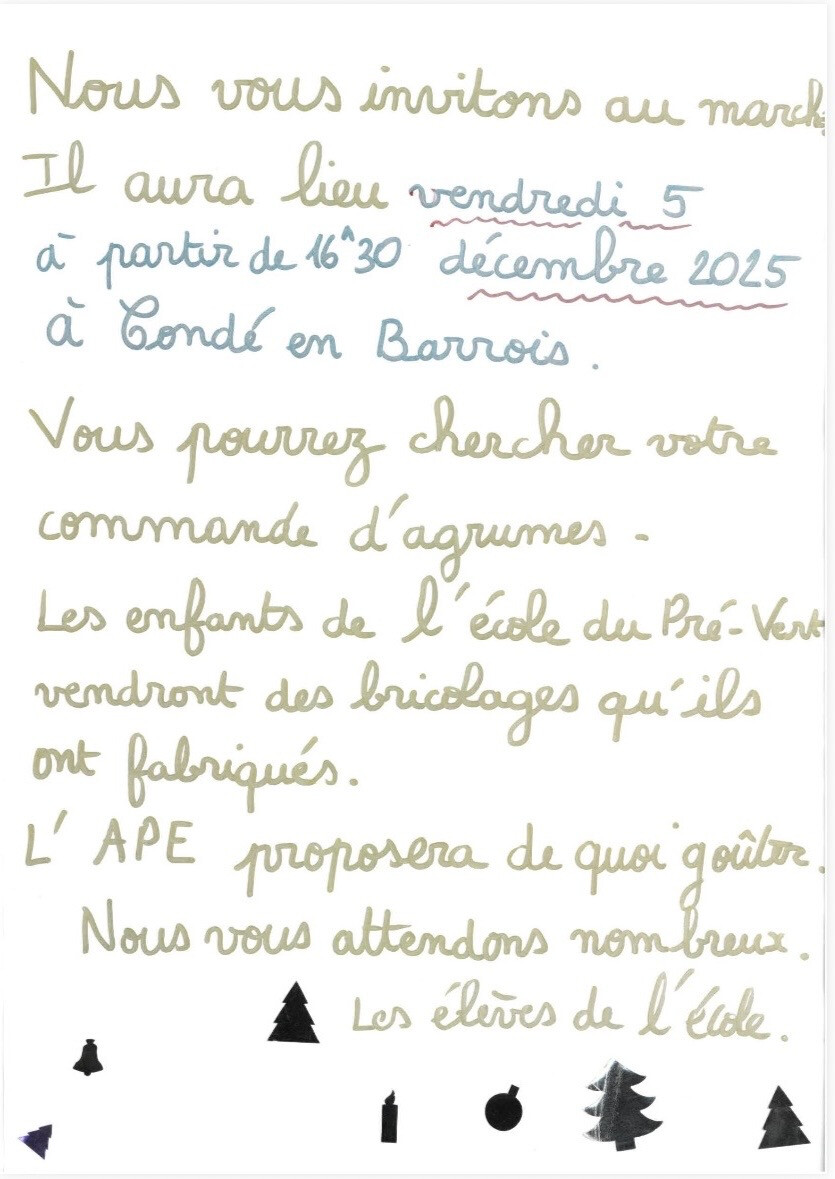 Nous vous invitons au march
Il aura lieu vendredi 5
à partir de 16h30 décembre 2025
à Condé en Barrois.
Vous pourrez chercher votre
commande d'agrumes -
Les enfants de l'école du Pré-Vert
vendront des bricolages qu'ils
ont fabriqués.
L'APE proposera de quoi goûter.
Nous vous attendons nombreux.
Les élèves de l'école.